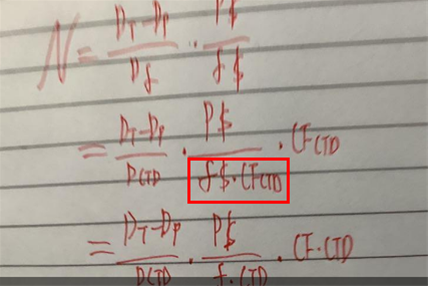 N = (D_T - D_P) / D_f · P$ / f$
= (D_T - D_P) / D_CTD · P$ / (f$ · CF_CTD) · CF_CTD
= (D_T - D_P) / D_CTD · P$ / (f · CTD) · CF · CTD